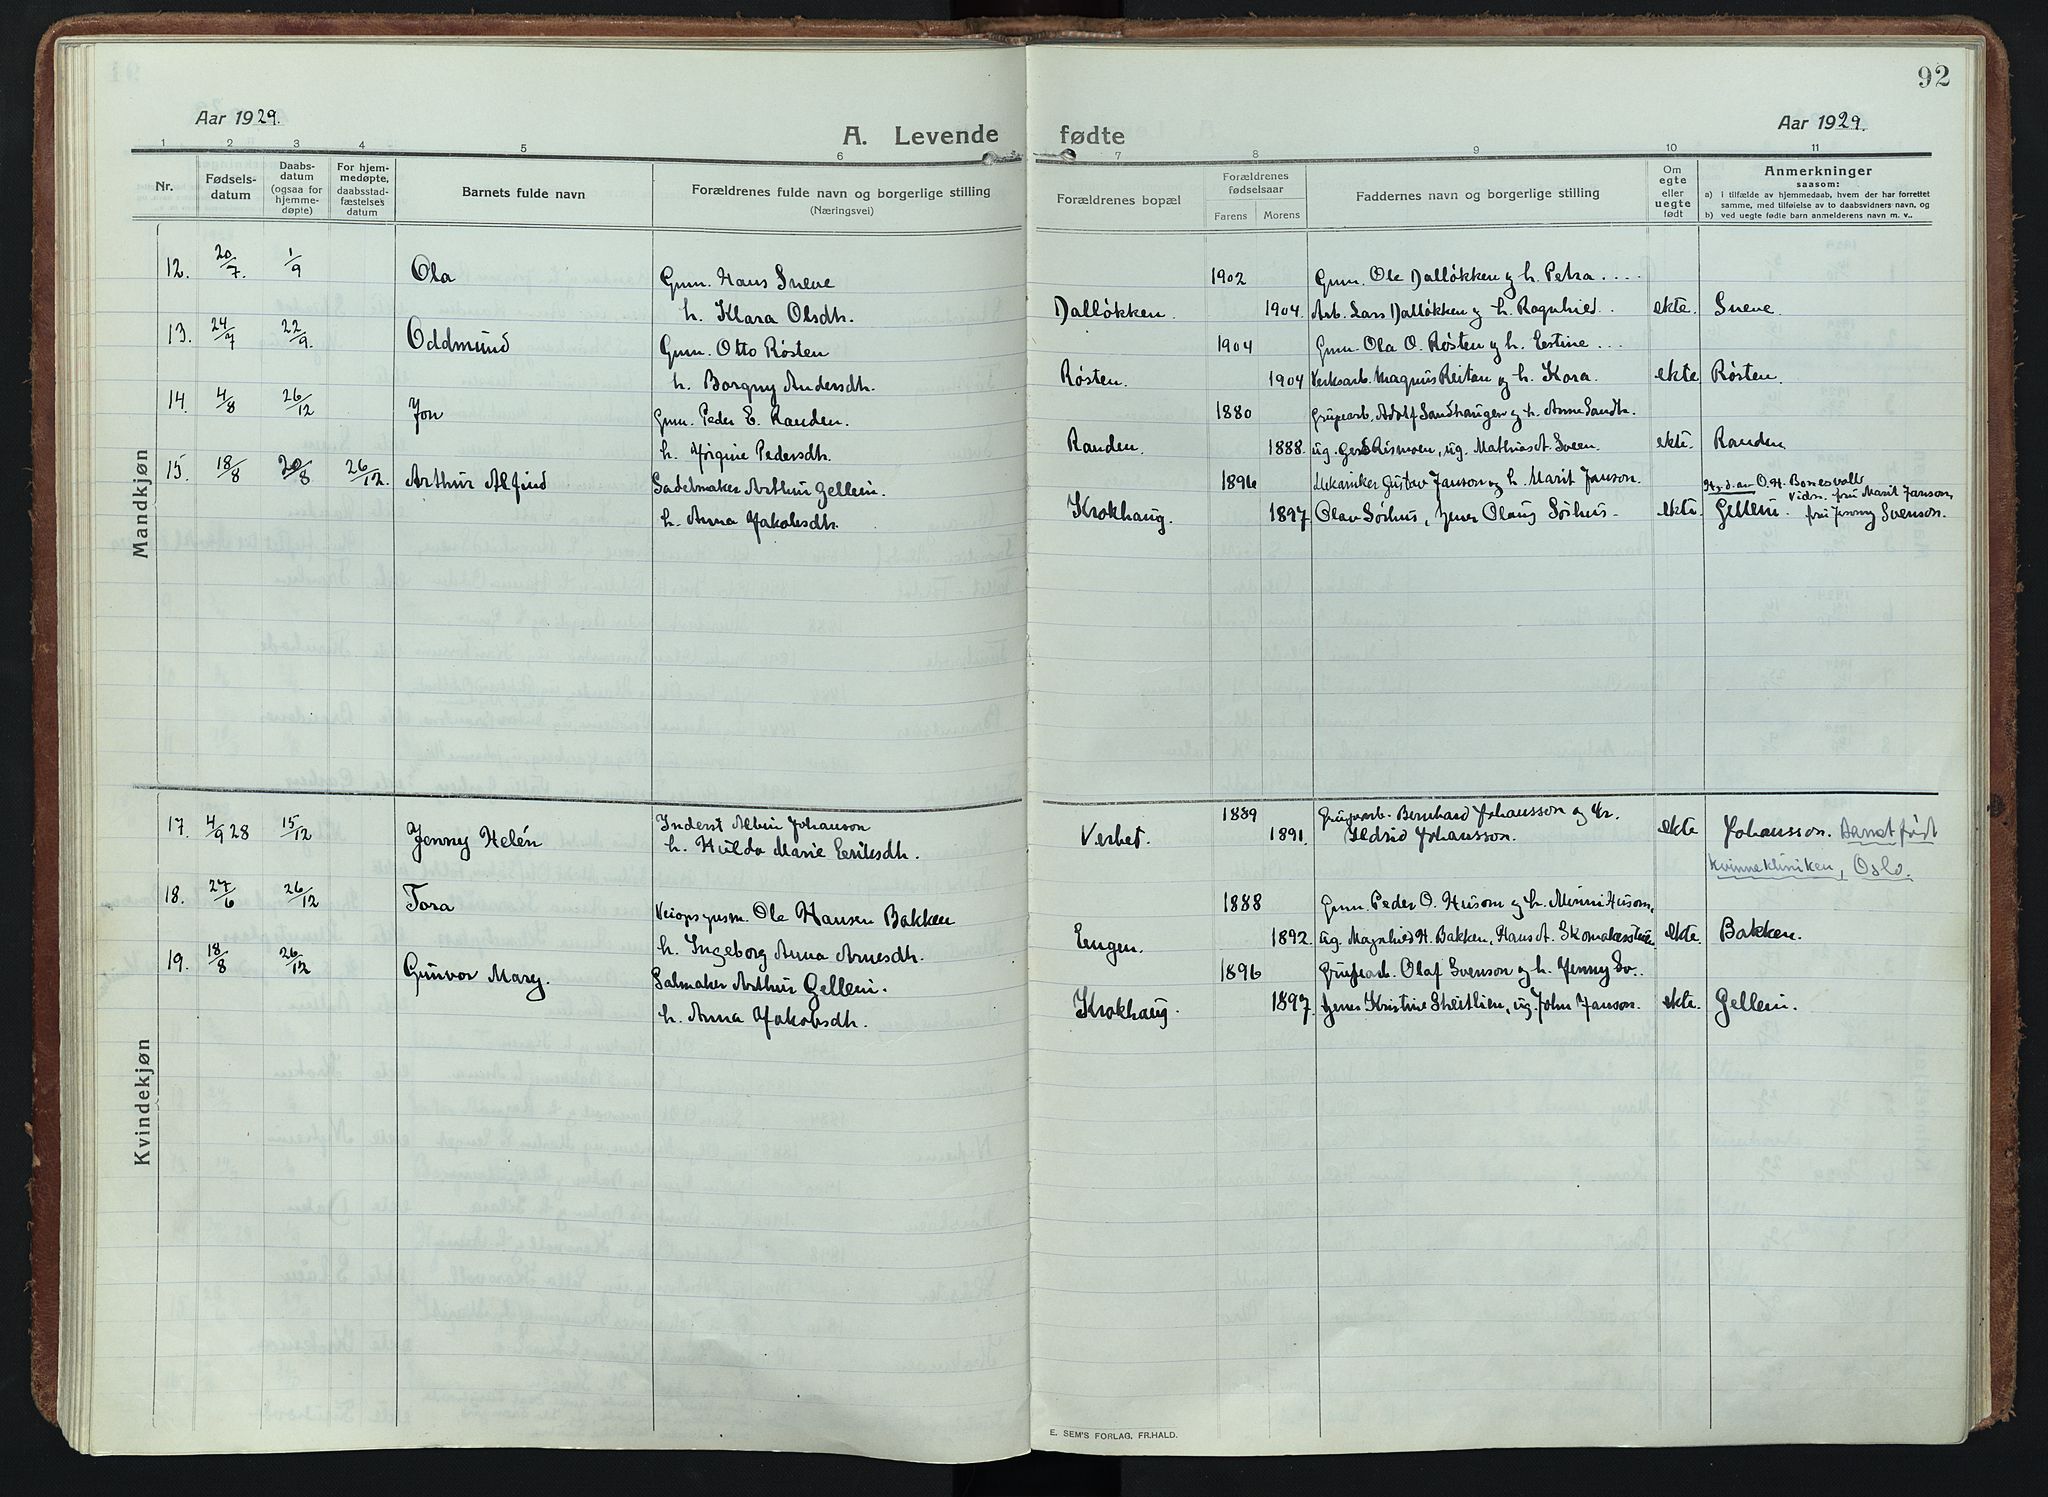 92
Aar 1929.
A. Levende fødte
Aar 1929.
1 2 3 4 5 6 7 8 9 10 11
Nr.
Fødselsdatum
Daabsdatum (ogsaa for hjemmedøpte)
For hjemmedøpte, daabsstadfæstelses datum
Barnets fulde navn
Forældrenes fulde navn og borgerlige stilling
(Næringsvei)
Forældrenes bopæl
Forældrenes fødselsaar
Farens Morens
Faddernes navn og borgerlige stilling
Om egte eller uegte født
Anmerkninger
saasom:
a) i tilfælde av hjemmedaab, hvem der har forrettet
samme, med tilføielse av to daabsvidners navn, og
b) ved uegte fødte barn anmelderens navn m. v..
Mandkjøn
12. 20/7. 1/9 Ola Gmn. Hans Sneve 1902 Gmn. Ole Dalløkken og h. Petra ....
h. Klara Olsdtr. Dalløkken. 1904. Arb. Lars Dalløkken og h. Ragnhild. ekte. Sneve.
13. 24/7 22/9. Oddmund Gmn. Otto Røsten 1904 Gmn. Ola O. Røsten og h. Estine ...
h. Borgny Andersdtr. Røsten. 1904 Verksarb. Magnus Reitan og h. Kora. ekte Røsten.
14. 4/8 26/12 Jon Gmn. Peder E. Randen. 1880 Grupearb. Adolf Sandhaugen og h. Anne Sandh.
Pedersdtr. Randen. 1888. ug. Rismoen, ug. Mathias A. Sveen. ekte. Randen
15. 18/8 20/8 26/12. Arthur Alfind Sadelmaker Arthur Gellein. 1896 Mekaniker Gustav Janson og h. Marit Janson. H.d. av O.H. Bonesvoll
Vidn. fru Marit Janson,
h. Anna Jakobsdtr. Krokhaug. 1897 Olav Sørhus, Olaug Sørhus - ekte. Gellein. fru Jenny Svenson.
Kvindekjøn
17. 4/9 28 15/12 Jenny Helén Inderst Albin Johanson 1889 Grupearb. Bernhard Johansson og fr.
h. Hulda Marie Eriksdtr. Verket. 1891. Ildrid Johansson. ekte Johansson. Barnet født
Kvinneklinikken, Oslo.
18. 27/6 26/12 Tora Veiopsynsm. Ole Hansen Bakken 1888 Gmn. Peder O. Husom og h. Minni Husom,
h. Ingeborg Anna Arnesdtr. Engen. 1892. ug. Magnhild H. Bakken, Hans A. ekte. Bakken.
19. 18/8 26/12 Gunvor Mary. Salmaker Arthur Gellein. 1896 Grupearb. Olaf Svenson og h. Jenny Sv..
h. Anna Jakobsdtr. Krokhaug. 1897. Kristine Streitlien, ug. John Janson. ekte. Gellein.
E. SEM'S FORLAG. FR.HALD.